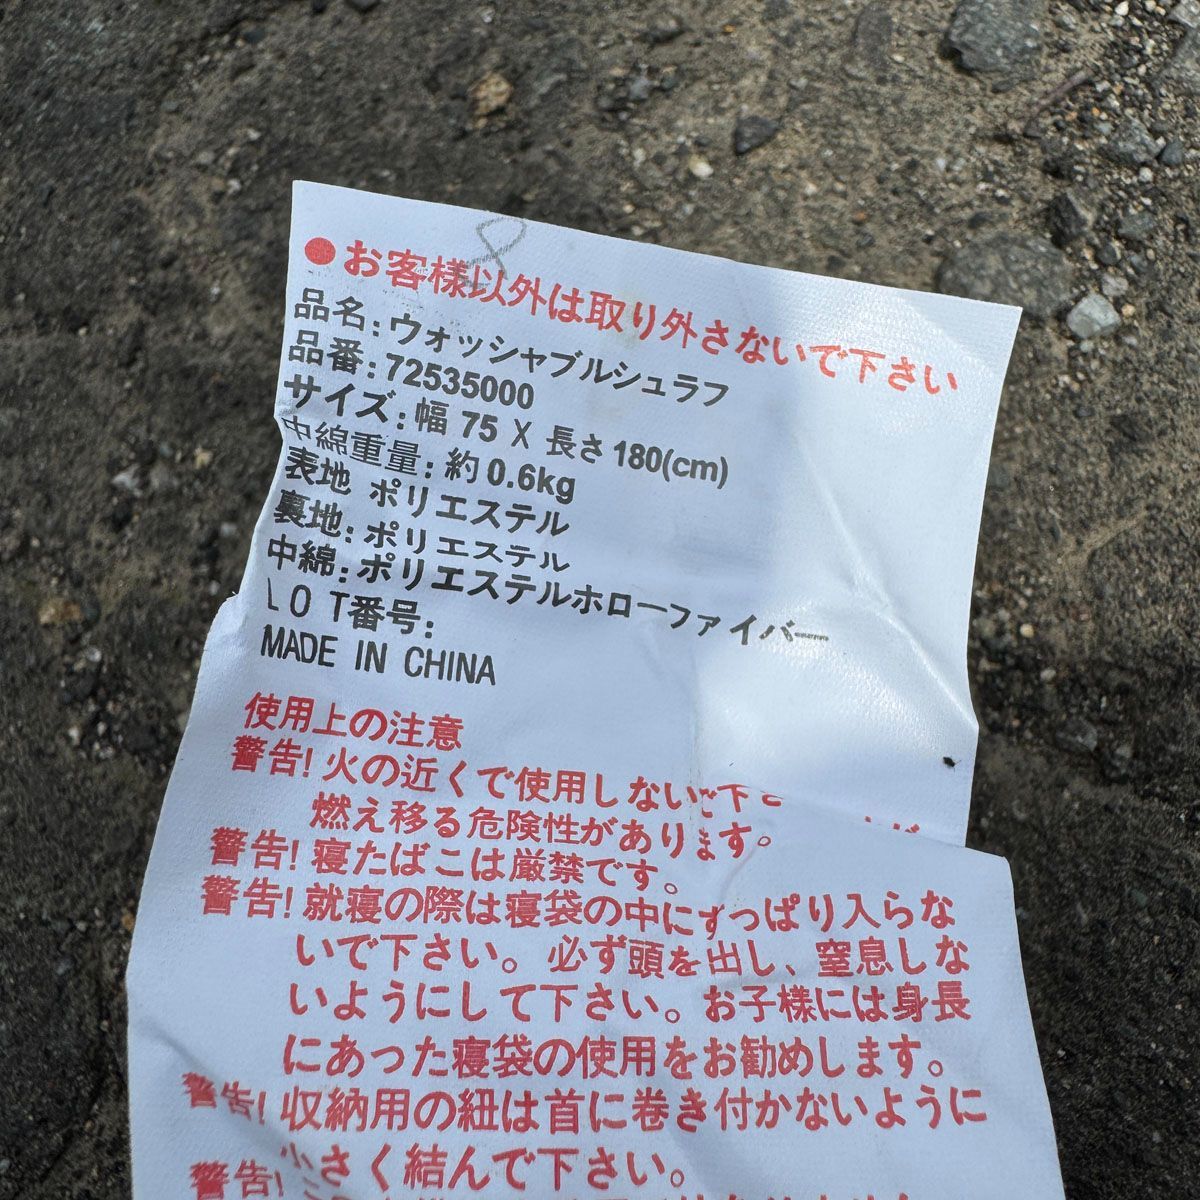 ●お客様以外は取り外さないで下さい
品名:ウォッシャブルシュラフ
品番:72535000
サイズ:幅 75 X 長さ 180(cm)
中綿重量:約0.6kg
表地 ポリエステル
裏地:ポリエステル
中綿:ポリエステルホローファイバー
LOT番号:
MADE IN CHINA
使用上の注意
警告!火の近くで使用しないで下さ
燃え移る危険性があります。
警告!寝たばこは厳禁です。
警告!就寝の際は寝袋の中にずっぽり入らな
いで下さい。必ず頭を出し、窒息しな
いようにして下さい。お子様には身長
にあった寝袋の使用をお勧めします。
警告!収納用の紐は首に巻き付かないように
小さく結んで下さい。
警告!